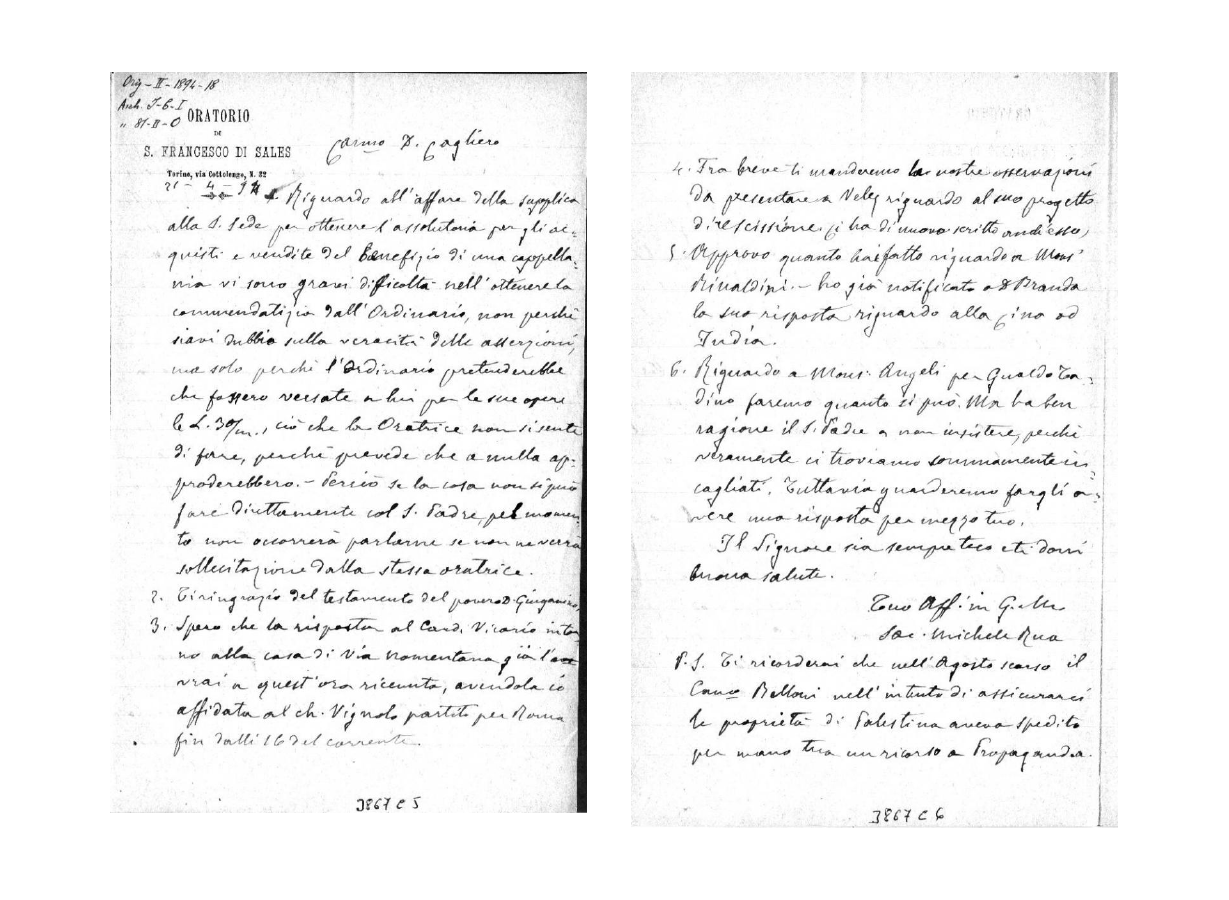 Orig - II - 1894 - 18
Arch. I-6-I
" 81-II-O
ORATORIO
DI
S. FRANCESCO DI SALES
Torino, via Cottolengo, N. 32
21 - 4 - 94
Carmo D. Cagliero
1. Riguardo all'affare della supplica
alla S. Sede per ottenere l'assolutoria per gli ac=
quisti e vendite del benefizio di una cappella=
nia vi sono gravi difficoltà nell'ottenere la
commendatizia dall'Ordinario, non perché
siavi dubbio sulla veracità delle asserzioni,
ma solo perché l'Ordinario pretenderebbe
che fossero versate a lui per le sue opere
le L. 30/m., ciò che la Oratrice non si sente
di fare, perché prevede che a nulla ap=
proderebbero. - Perciò se la cosa non si può
fare direttamente col S. Padre, pel momen=
to non occorrerà parlarne se non ne verrà
sollecitazione dalla stessa oratrice.
2. Ti ringrazio del testamento del povero D.
3. Spero che la risposta al Card. Vicario intor
no alla casa di Via Nomentana già l'av
vrai a quest'ora ricevuta, avendola io
affidata al ch. Vignolo partito per Roma
fin dalli 16 del corrente.
3867 C 5
4. Fra breve ti manderemo le nostre osservazioni
da presentare a Veley riguardo al suo progetto
di rescissione; ci ha di nuovo scritto anch'esso,
5. Approvo quanto hai fatto riguardo a Mons.
Rinaldini. - ho già notificato a D. Branda
la sua risposta riguardo alla Cina od
India.
6. Riguardo a Mons. Angeli per Gualdo Ta=
dino faremo quanto si può. Ma ha ben
ragione il S. Padre a non insistere, perché
veramente ci troviamo sommamente in=
cagliati. Tuttavia guarderemo fargli a=
vere una risposta per mezzo tuo.
Il Signore sia sempre teco e ti doni
buona salute.
Tuo Aff. in G. e M.
Sac. Michele Rua
P.S. Ti ricorderai che nell'Agosto scorso il
Canco Belloni nell'intento di assicurarci
le proprietà di Palestina aveva spedito
per mano tua un ricorso a Propaganda.
3867 C 6